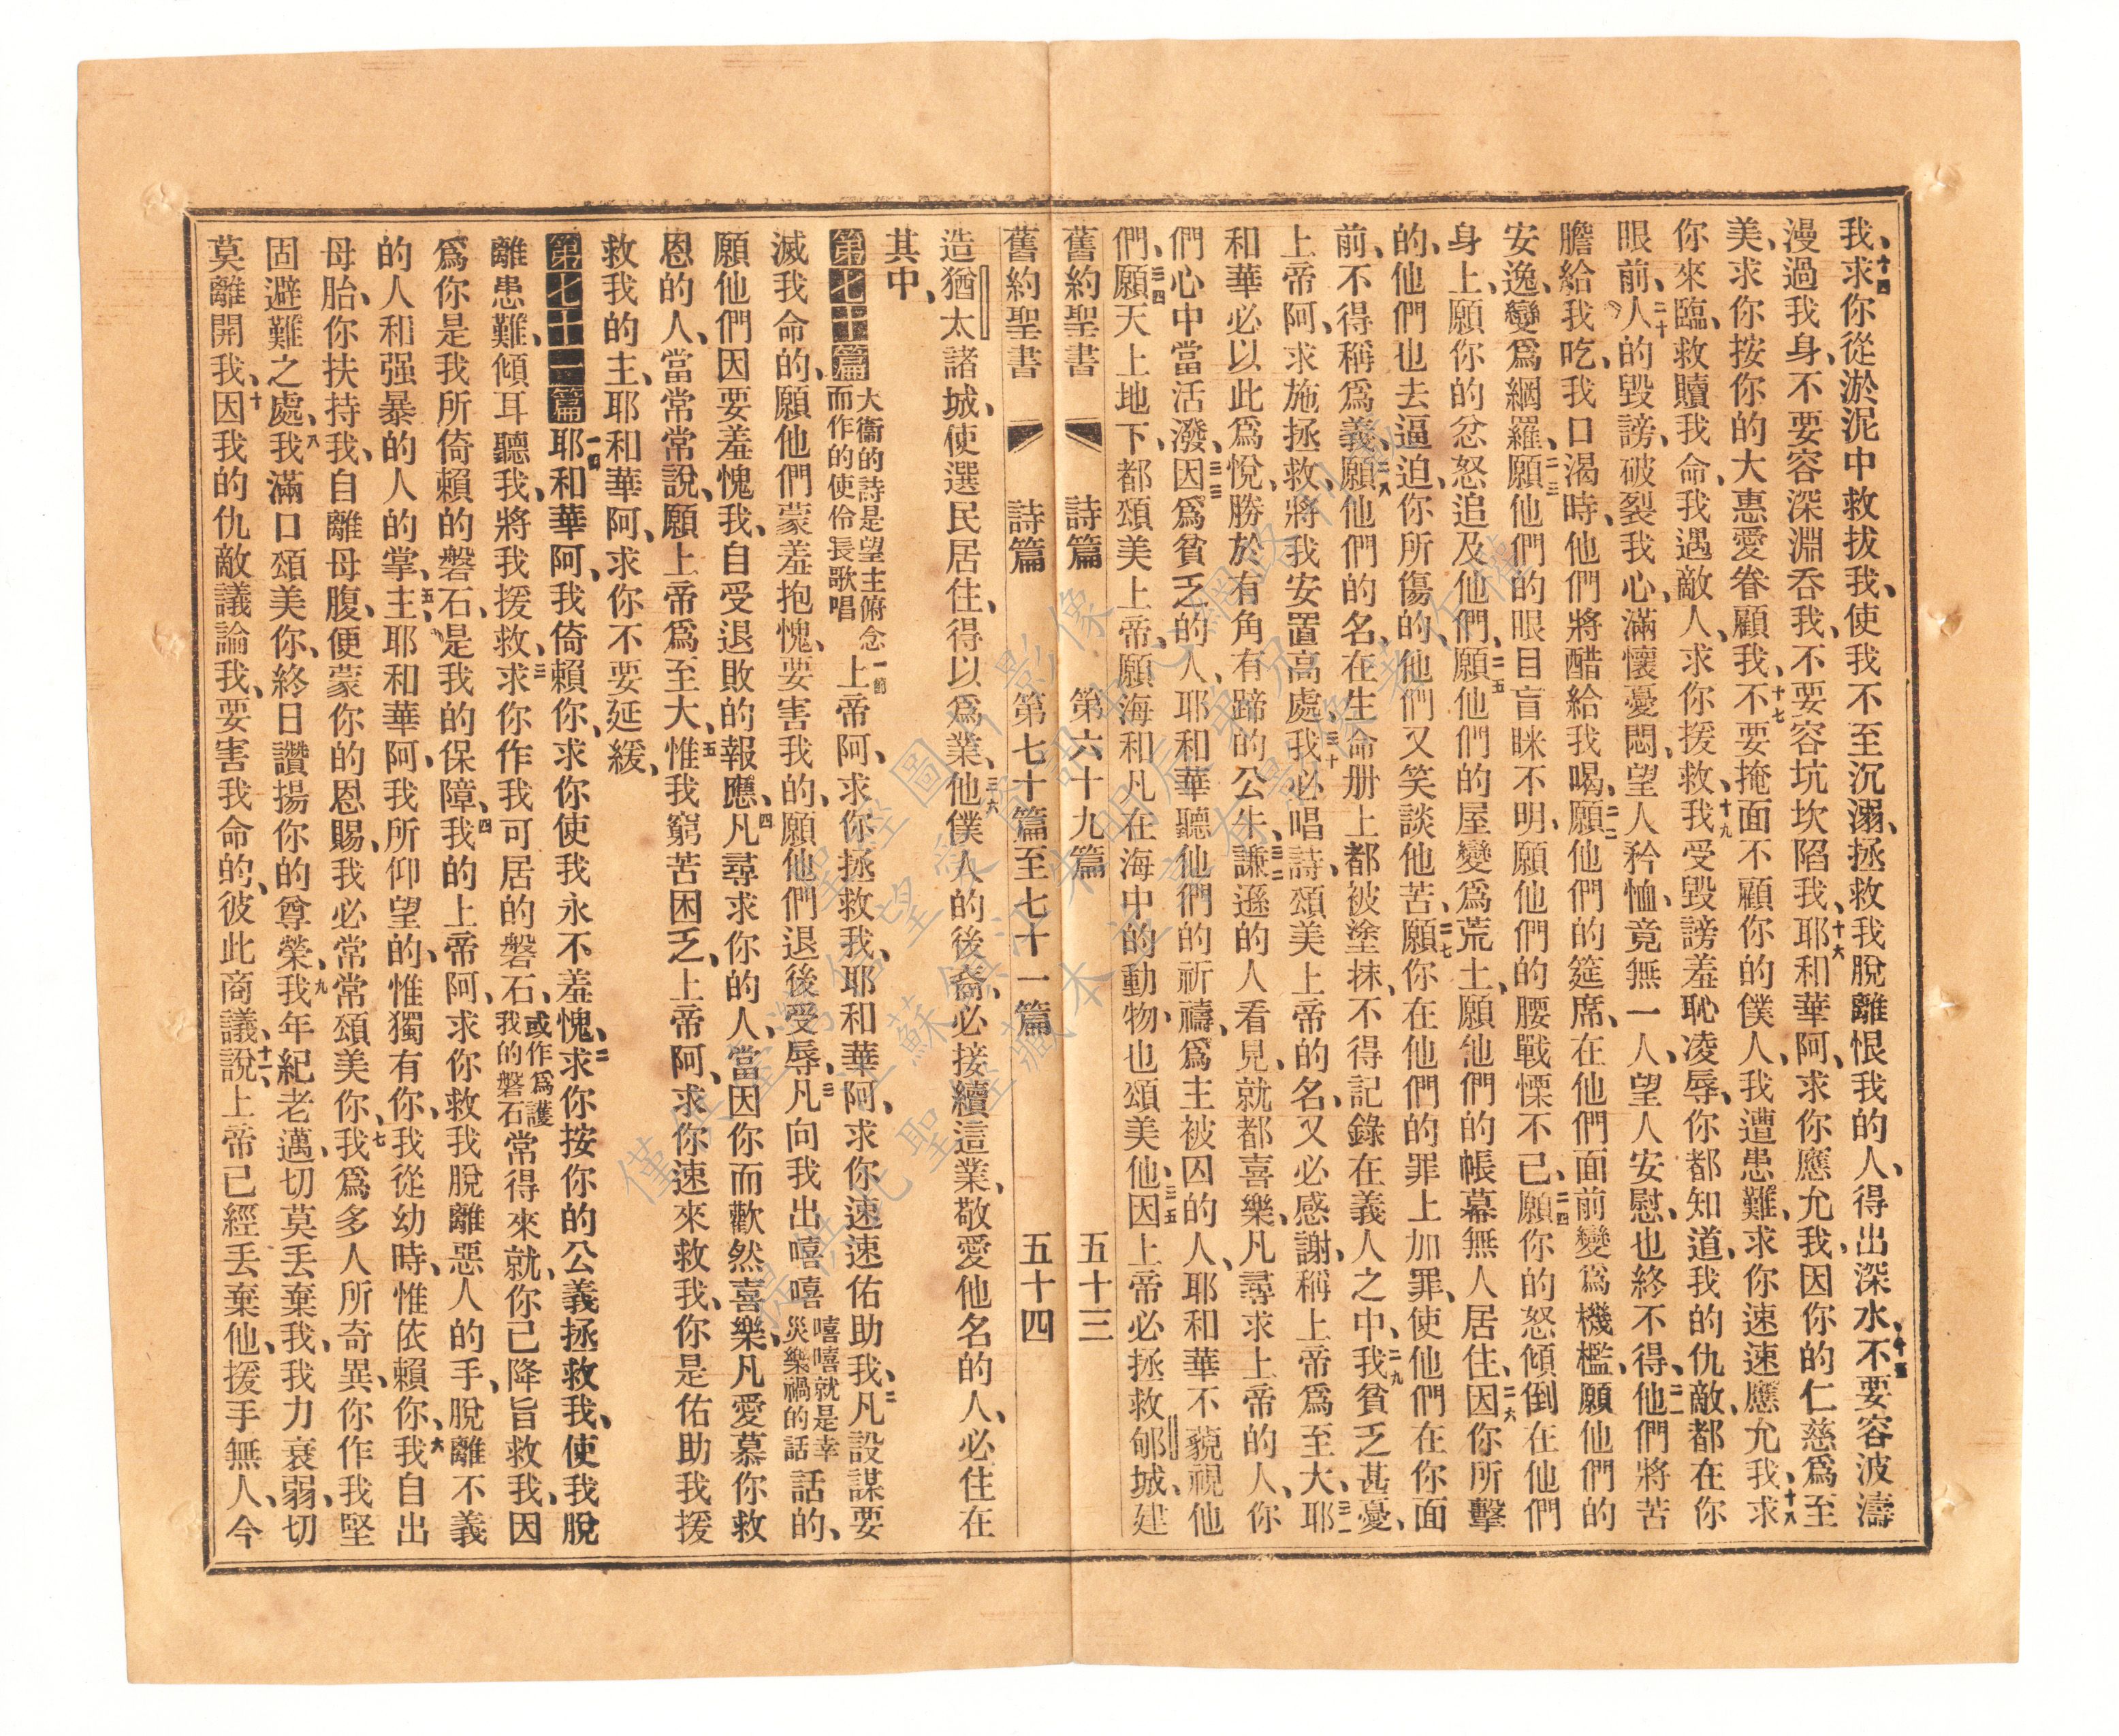 我、十四求你從淤泥中救拔我、使我不至沉溺、拯救我脫離恨我的人、得出深水、十五不要容波濤
漫過我身、不要容深淵吞我、不要容坑坎陷我、十六耶和華阿、求你應允我、因你的仁慈爲至
美、求你按你的大惠愛眷顧我、十七不要掩面不顧你的僕人、我遭患難、求你速速應允我、十八求
你來臨、救贖我命、我遇敵人、求你援救、十九我受毀謗羞恥凌辱、你都知道、我的仇敵、都在你
眼前、二十人的毀謗、破裂我心、滿懷憂悶、望人矜恤、竟無一人、望人安慰、也終不得、二一他們將苦
膽給我吃、我口渴時、他們將醋給我喝、二二願他們的筵席、在他們面前變爲機檻、願他們的
安逸、變爲網羅、二三願他們的眼目盲眯不明、願他們的腰戰慄不已、二四願你的怒傾倒在他們
身上、願你的忿怒追及他們、二五願他們的屋變爲荒土、願他們的帳幕無人居住、二六因你所擊
的、他們也去逼迫、你所傷的、他們又笑談他苦、二七願你在他們的罪上加罪、使他們在你面
前、不得稱爲義、二八願他們的名、在生命册上都被塗抹、不得記錄在義人之中、二九我貧乏甚憂、
上帝阿、求施拯救、將我安置高處、三十我必唱詩、頌美上帝的名、又必感謝、稱上帝爲至大、三一耶
和華必以此爲悅、勝於有角有蹄的公牛、三二謙遜的人看見、就都喜樂、凡尋求上帝的人、你
們心中當活潑、三三因爲貧乏的人、耶和華聽他們的祈禱、爲主被囚的人、耶和華不藐視他
們、三四願天上地下、都頌美上帝、願海和凡在海中的動物、也頌美他、三五因上帝必拯救郇城、建
舊約聖書 詩篇 第六十九篇 五十三
舊約聖書 詩篇 第七十篇至七十一篇 五十四
造猶太諸城、使選民居住、得以爲業、三六他僕人的後裔、必接續這業、敬愛他名的人、必住在
其中、
第七十篇 大衞的詩是望主俯念而作的使伶長歌唱 一節上帝阿、求你拯救我、耶和華阿、求你速速佑助我、二凡設謀要
滅我命的、願他們蒙羞抱愧、要害我的、願他們退後受辱、三凡向我出嘻嘻 嘻嘻就是幸災樂禍的話 話的、
願他們因要羞愧我、自受退敗的報應、四凡尋求你的人、當因你而歡然喜樂、凡愛慕你救
恩的人、當常常說、願上帝爲至大、五惟我窮苦困乏、上帝阿、求你速來救我、你是佑助我援
救我的主、耶和華阿、求你不要延緩、
第七十一篇 一節耶和華阿、我倚賴你、求你使我永不羞愧、二求你按你的公義拯救我、使我脫
離患難、傾耳聽我、將我援救、三求你作我可居的磐石、或作爲護我的磐石常得來就、你已降旨救我、因
爲你是我所倚賴的磐石、是我的保障、四我的上帝阿、求你救我脫離惡人的手、脫離不義
的人和强暴的人的掌、五主耶和華阿、我所仰望的、惟獨有你、我從幼時、惟依賴你、六我自出
母胎、你扶持我、自離母腹、便蒙你的恩賜、我必常常頌美你、七我爲多人所奇異、你作我堅
固避難之處、八我滿口頌美你、終日讚揚你的尊榮、九我年紀老邁、切莫丢棄我、我力衰弱、切
莫離開我、十因我的仇敵議論我、要害我命的、彼此商議、十一說上帝已經丢棄他、援手無人、今